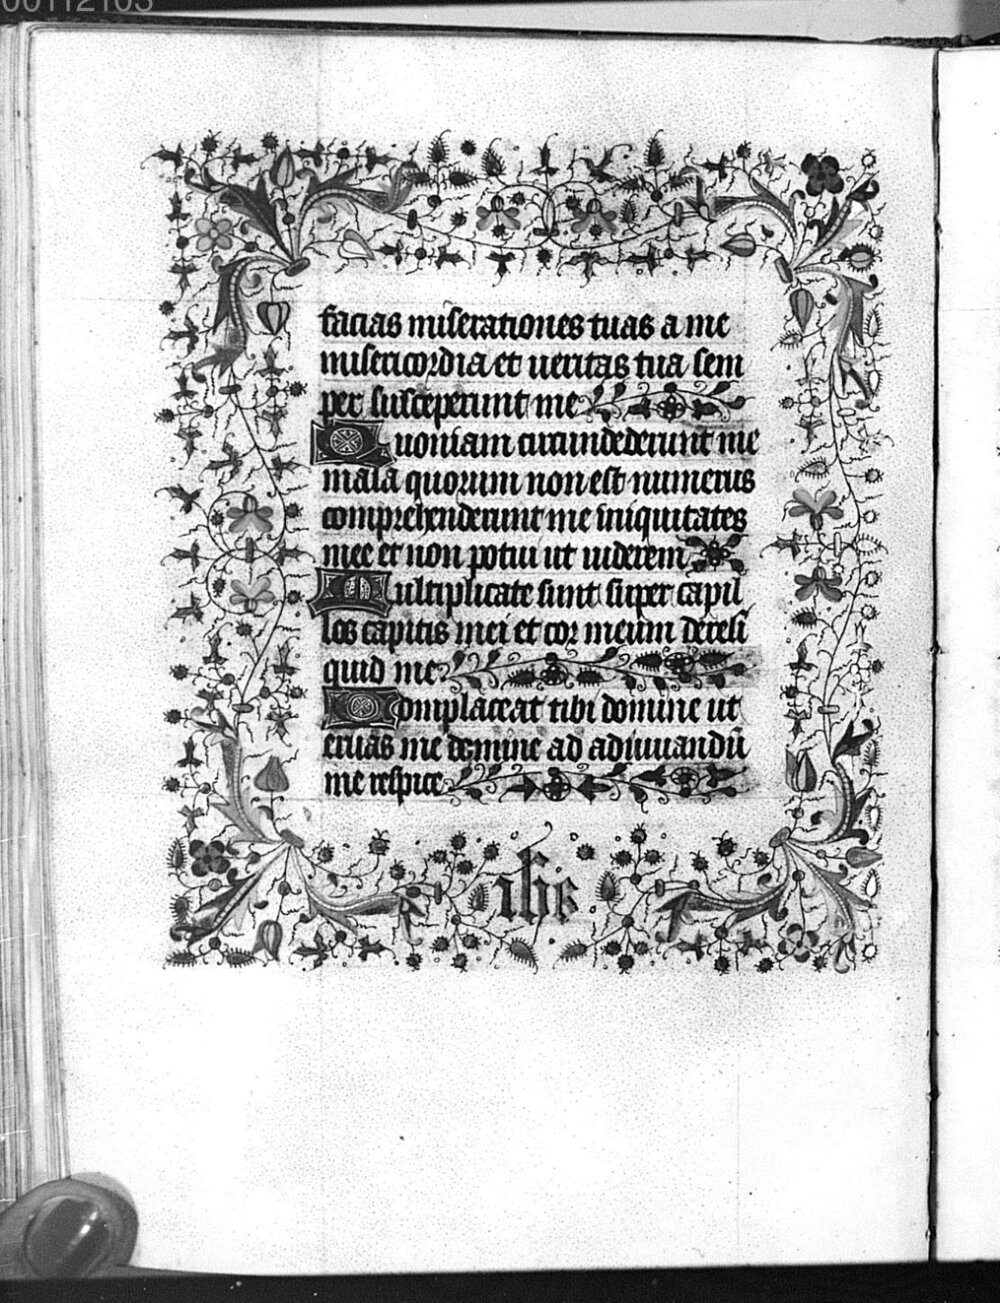 00112103
facias miserationes tuas a me
misericordia et ueritas tua sem
per susceperunt me
Quoniam circumdederunt me
mala quorum non est numerus
comprehenderunt me iniquitates
mee et non potui ut uiderem
Multiplicate sunt super capil
los capitis mei et cor meum dereli
quid me
Complaceat tibi domine ut
eruas me domine ad adiuuandū
me respice
ihs